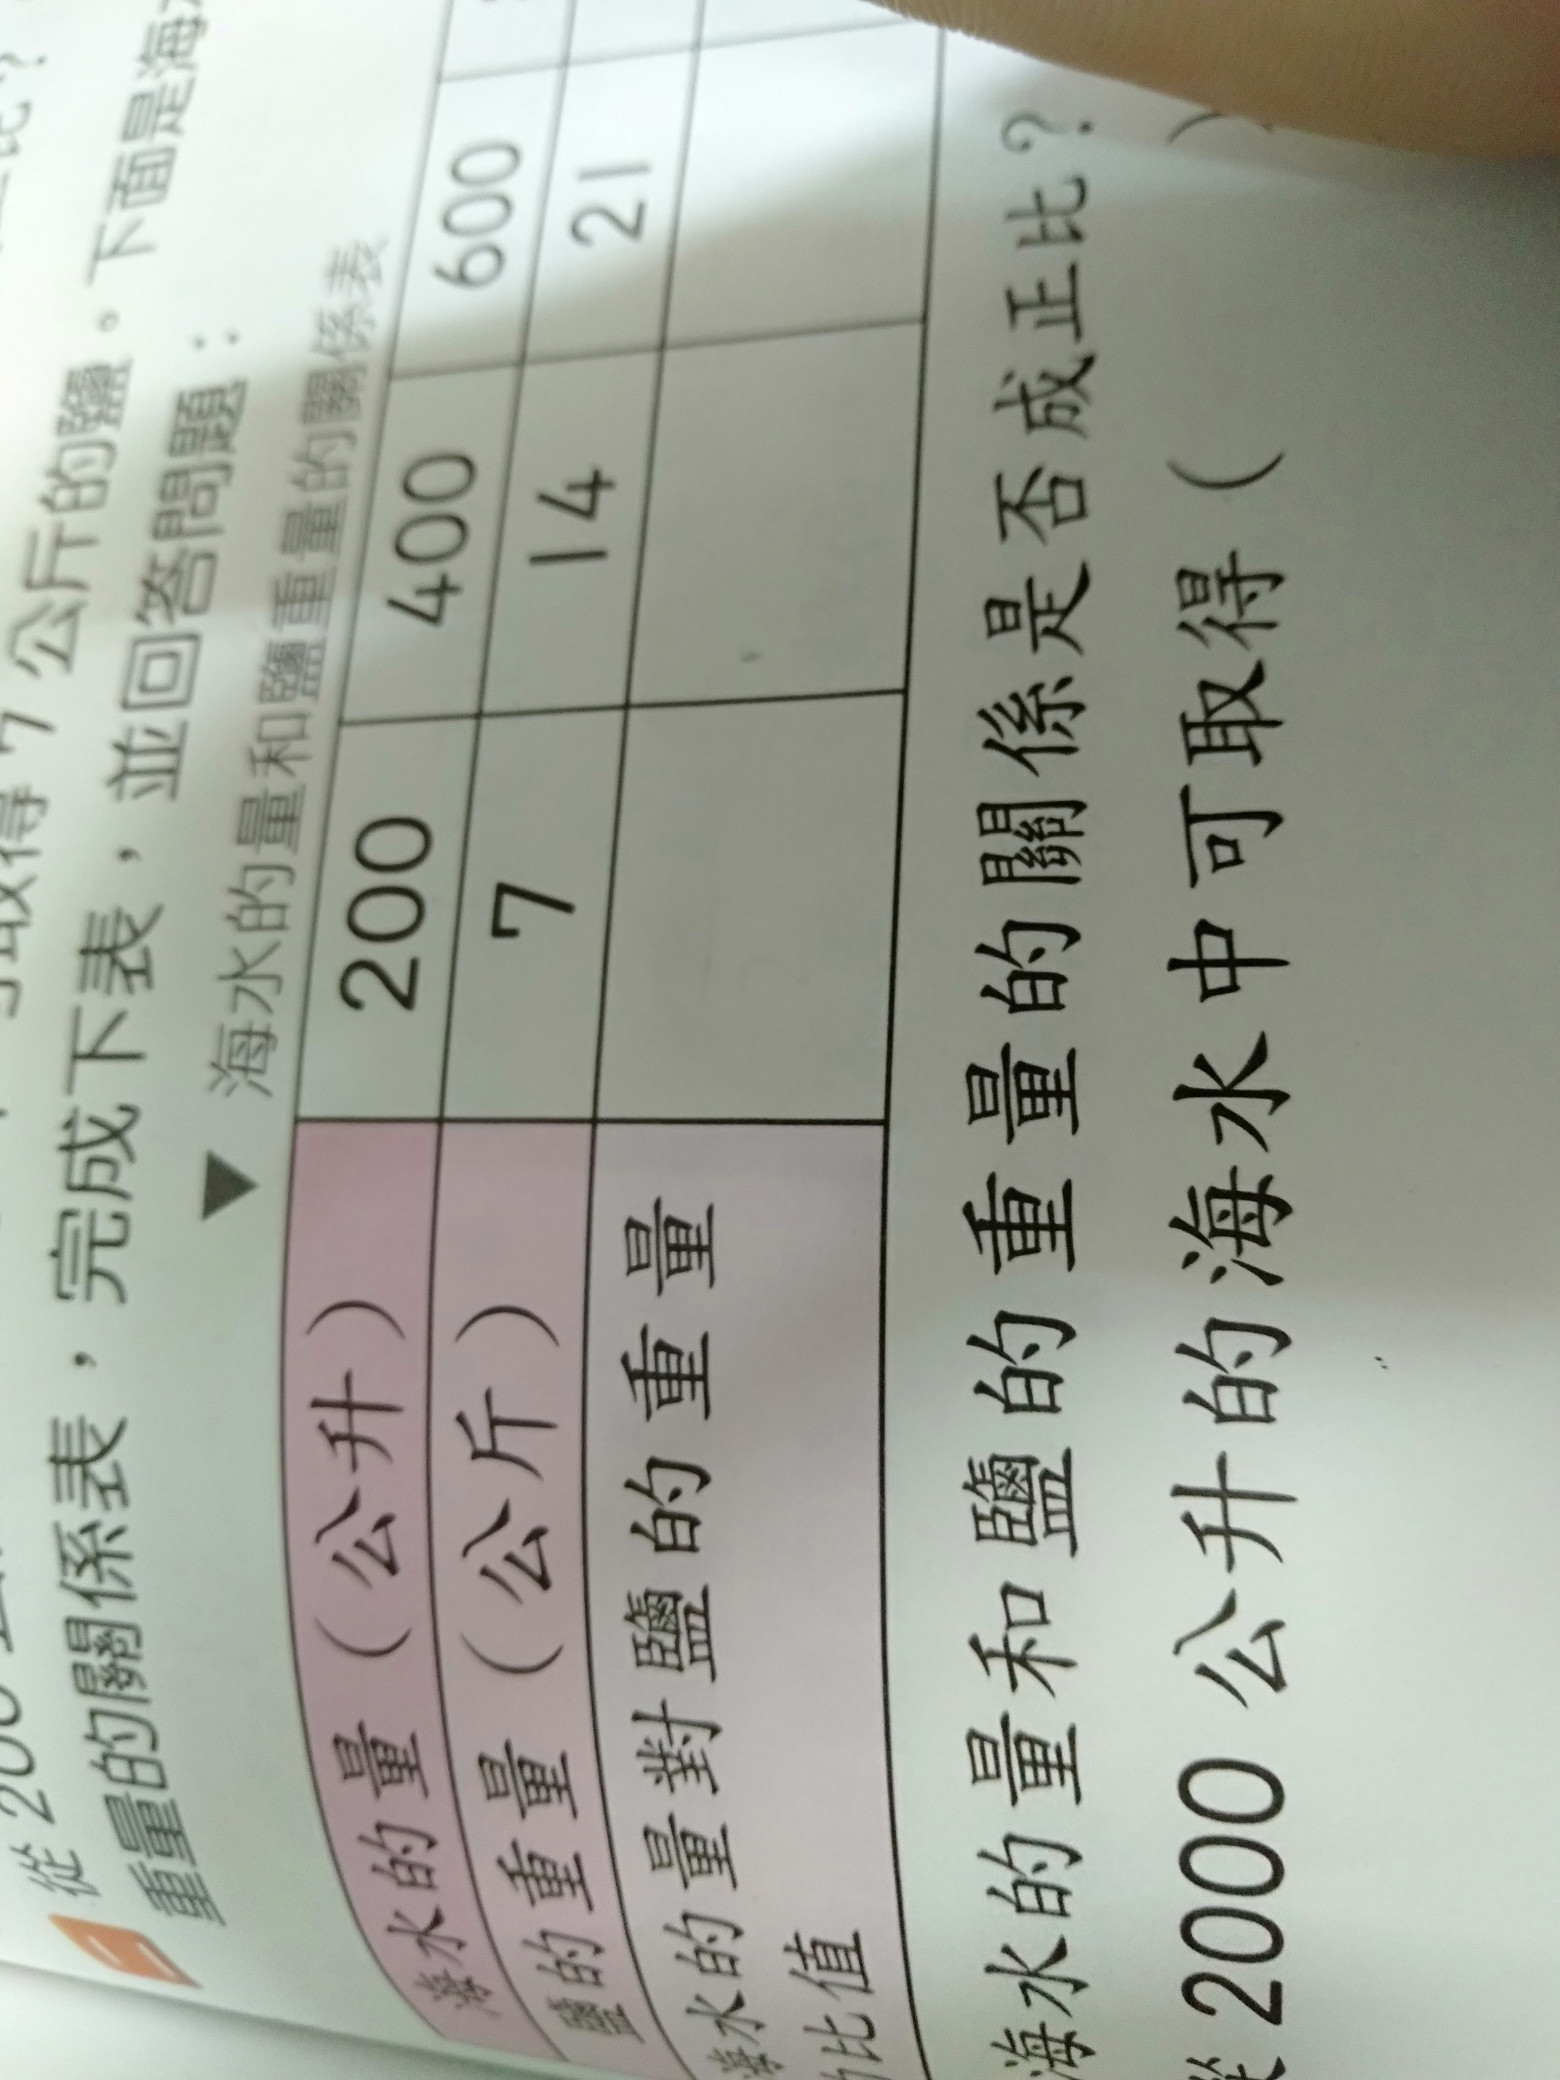 從 200 取得 7 公斤的鹽。下面是海
重量的關係表，完成下表，並回答問題：
▼ 海水的量和鹽重量的關係表
海水的量（公升） 200 400 600
鹽的重量（公斤） 7 14 21
海水的量對鹽的重量
的比值
海水的量和鹽的重量的關係是否成正比？
從 2000 公升的海水中可取得（